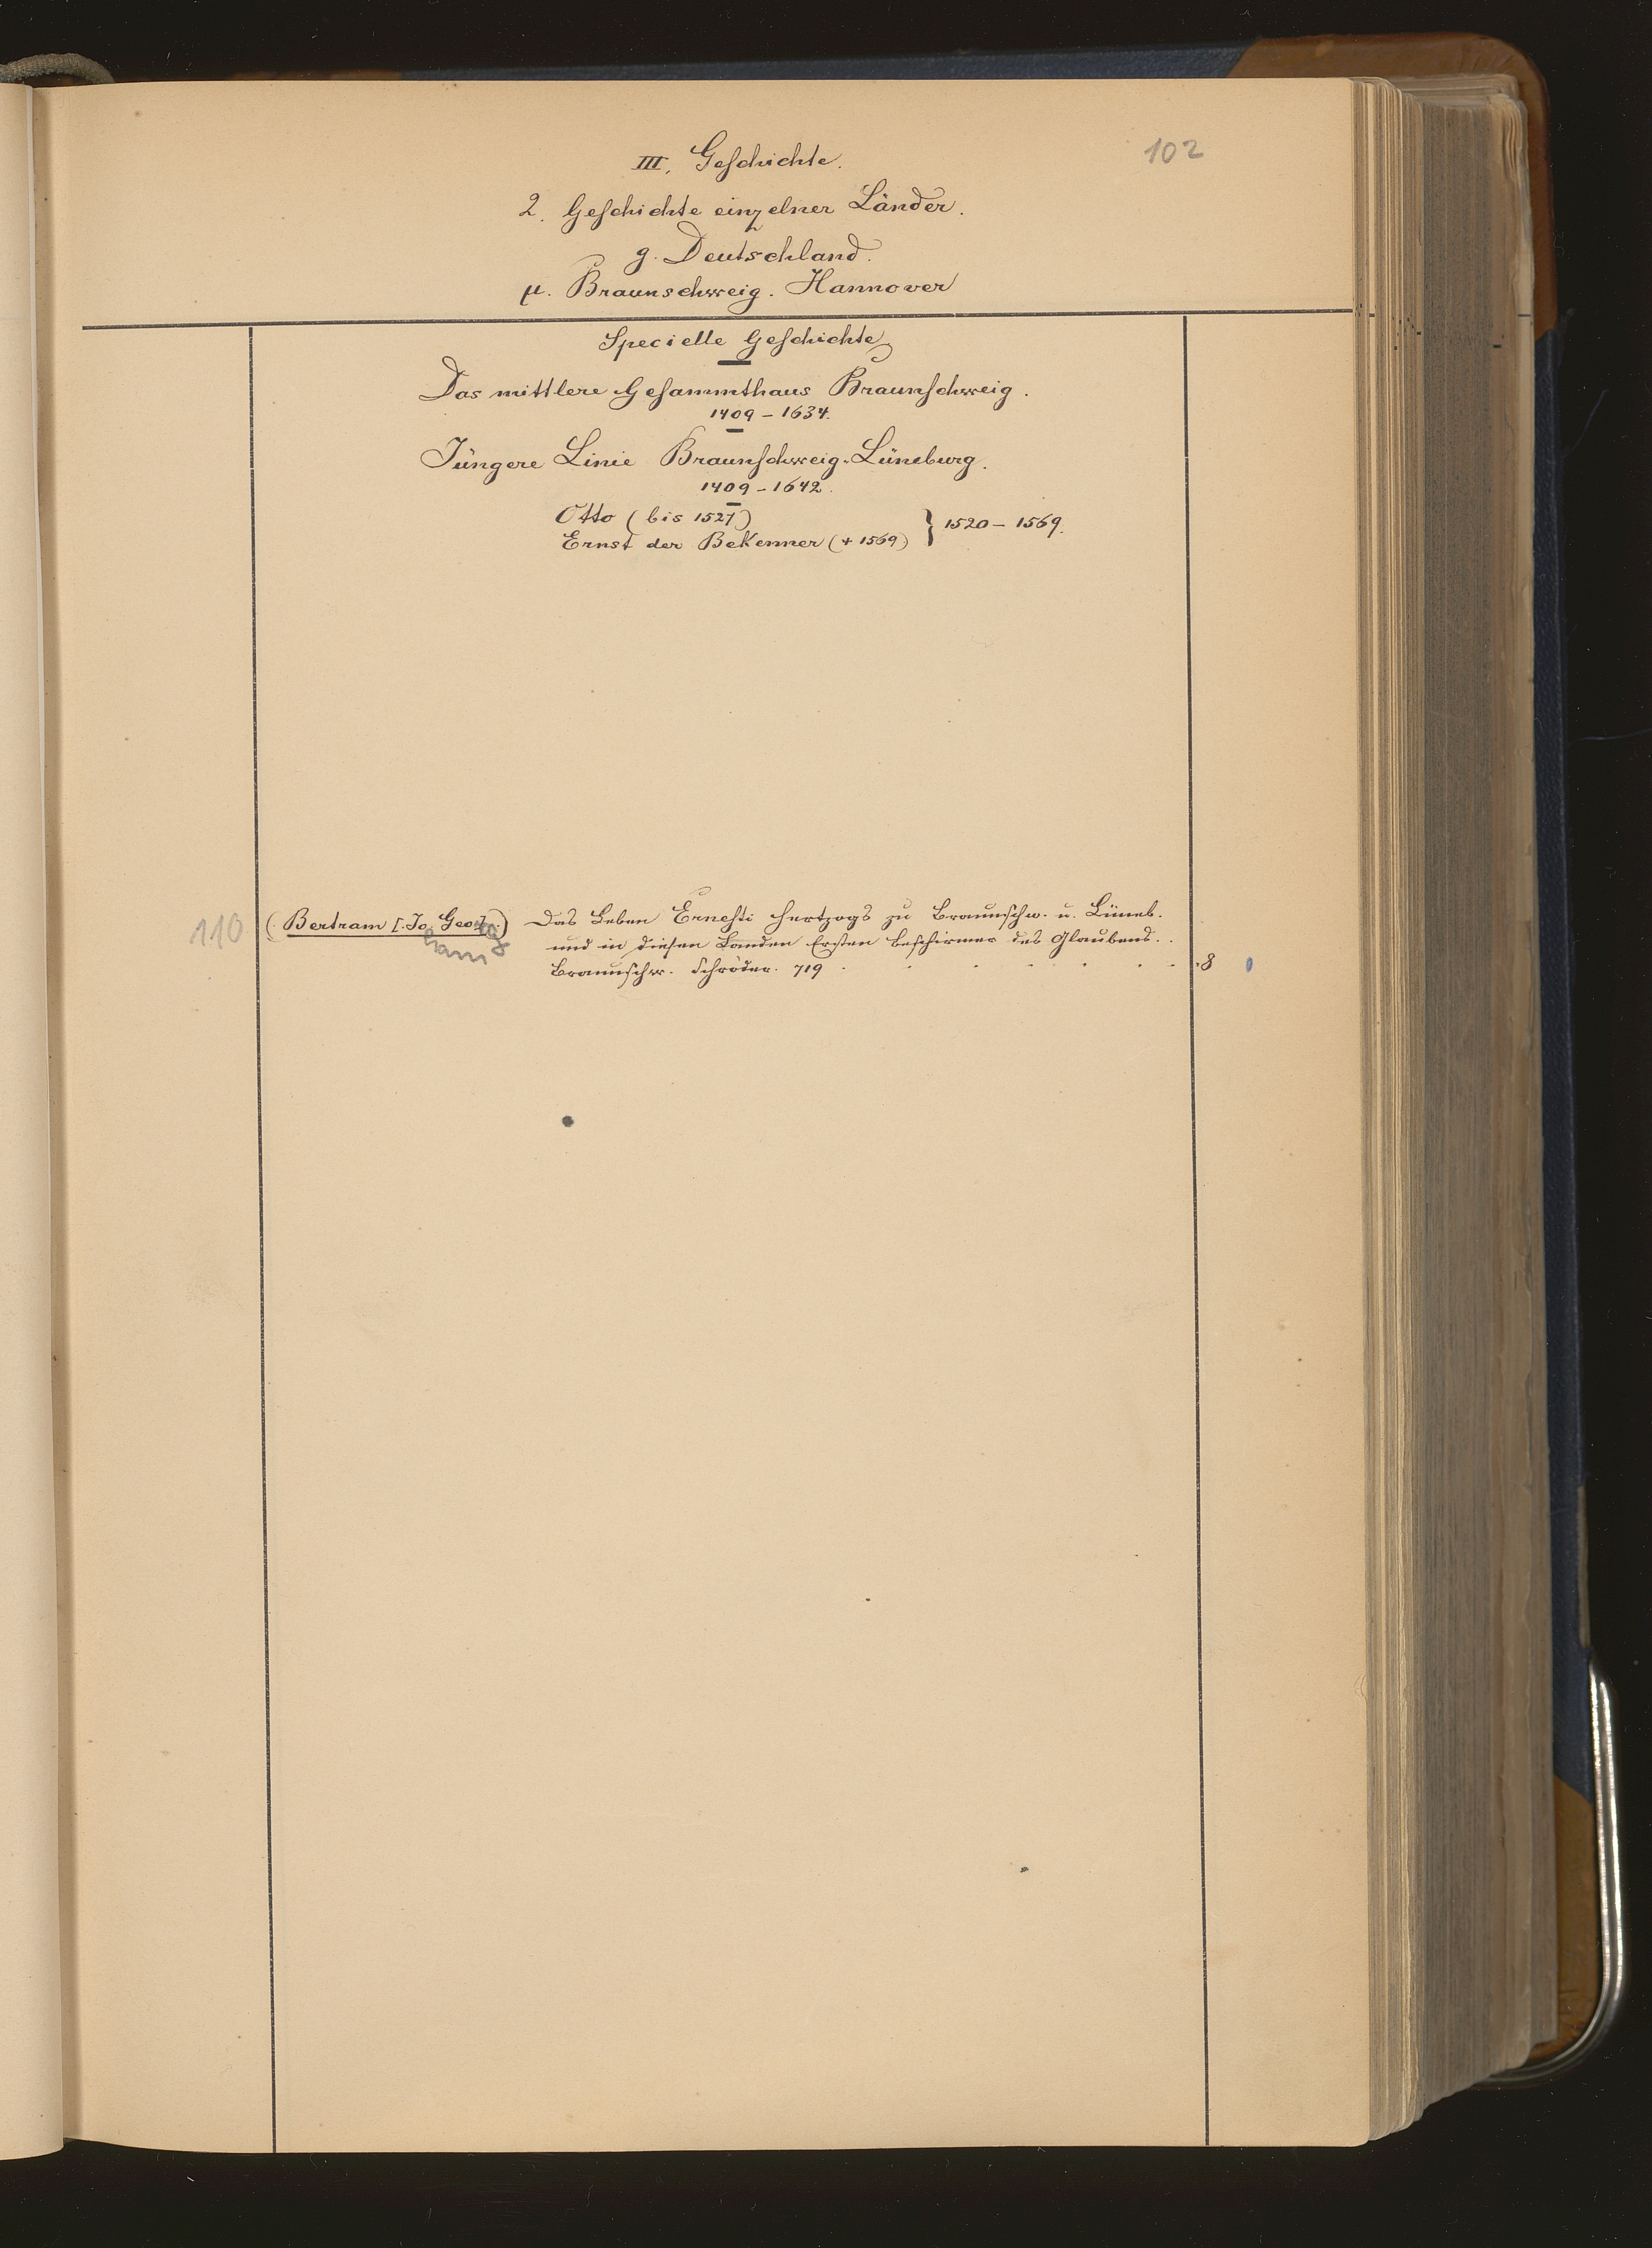 102
III. Geschichte.
2. Geschichte einzelner Länder.
g. Deutschland.
µ. Braunschweig. Hannover
Specielle Geschichte
Das mittlere Gesammthaus Braunschweig.
1409 - 1634.
Jüngere Linie Braunschweig-Lüneburg.
1409 - 1642.
Otto (bis 1527)
Ernst der Bekenner († 1569) } 1520 - 1569.
110 (Bertram [Jo. Georg]) Das Leben Ernesti Hertzogs zu Braunschw. u. Lüneb.
und in diesen Landen Ersten Beschirmer des Glaubens.
Braunschw. Schröder. 719 . . . . . . . 8